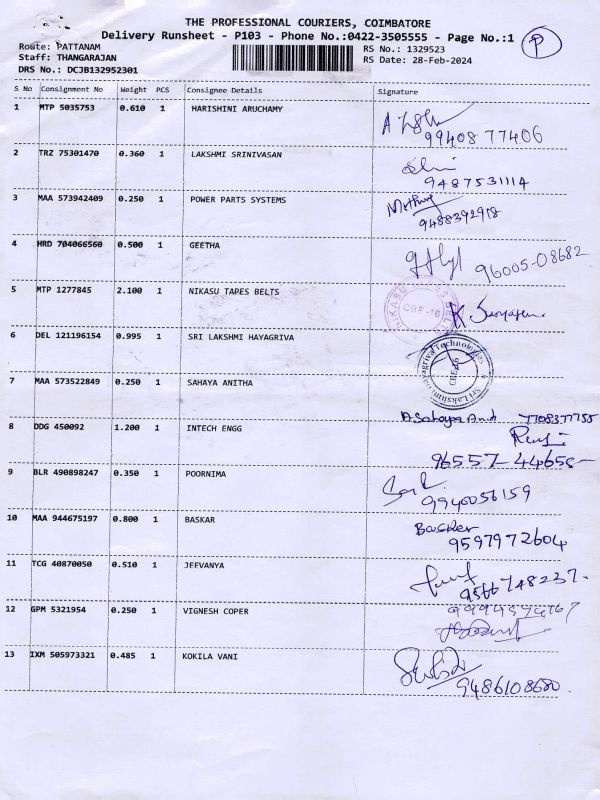 THE PROFESSIONAL COURIERS, COIMBATORE
Delivery Runsheet - P103 - Phone No.:0422-3505555 - Page No.:1 P
Route: PATTANAM RS No.: 1329523
Staff: THANGARAJAN RS Date: 28-Feb-2024
DRS No.: DCJB132952301
S No Consignment No Weight PCS Consignee Details Signature
1 MTP 5035753 0.610 1 HARISHINI ARUCHAMY
99408 77406
2 TRZ 75301470 0.360 1 LAKSHMI SRINIVASAN
9487531114
3 MAA 573942409 0.250 1 POWER PARTS SYSTEMS
9488392918
4 HRD 704066560 0.500 1 GEETHA
96005-08682
5 MTP 1277845 2.100 1 NIKASU TAPES BELTS
NIKASU CBE-16 K
6 DEL 121196154 0.995 1 SRI LAKSHMI HAYAGRIVA
Sri Lakshmi Hayagriva Technologies
7 MAA 573522849 0.250 1 SAHAYA ANITHA
A Sahaya Anit 7708377755
8 DDG 450092 1.200 1 INTECH ENGG
96557-44656
9 BLR 490898247 0.350 1 POORNIMA
9940056159
10 MAA 944675197 0.800 1 BASKAR
Basker
9597972604
11 TCG 40870050 0.510 1 JEEVANYA
9566748237.
12 GPM 5321954 0.250 1 VIGNESH COPER
13 IXM 505973321 0.485 1 KOKILA VANI
9486108680.